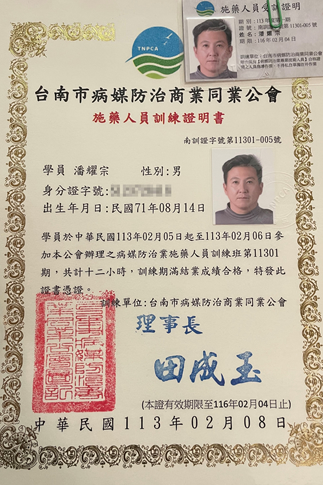 施藥人員受訓證明
TNPCA
台南市病媒防治商業同業公會
施藥人員訓練證明書
南訓證字號第11301-005號
學員 潘耀宗 性別:男
身分證字號:
出生年月日:民國71年08月14日
學員於中華民國113年02月05日起至113年02月06日參
加本公會辦理之病媒防治業施藥人員訓練班第11301
期,共計十二小時,訓練期滿結業成績合格,特發此
證書憑證。
訓練單位:台南市病媒防治商業同業公會
理事長
田成玉
(本證有效期限至116年02月04日止)
中華民國113年02月08日